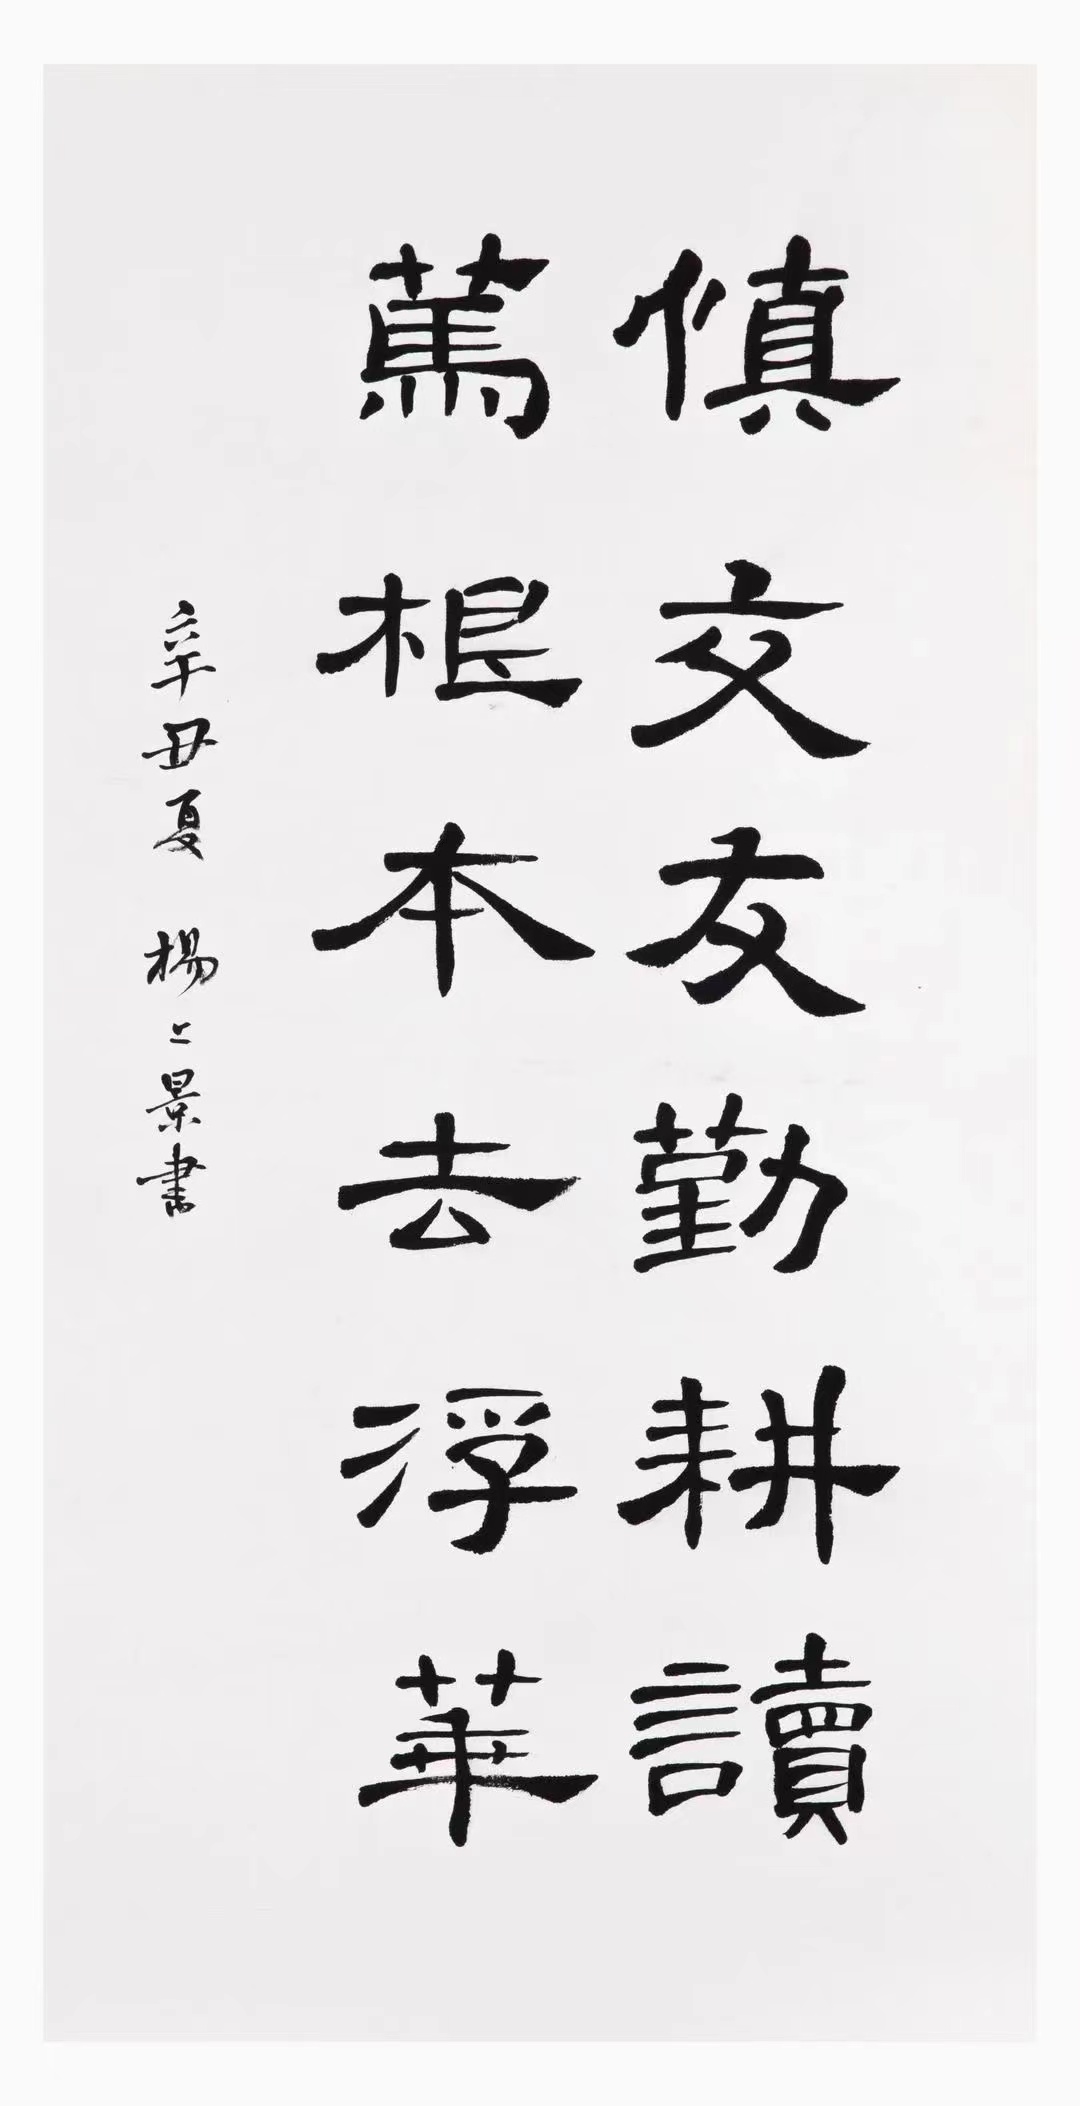 慎交友勤耕讀
篤根本去浮華
辛丑夏 楊上景書